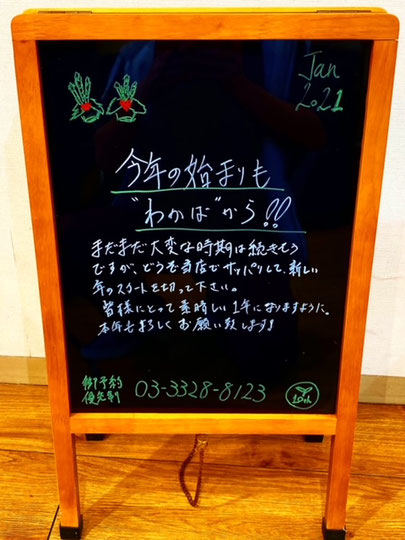 Jan
2021
今年の始まりも
"わかば"から!!
まだまだ大変な時期は続きそう
ですが、どうぞ当店でサッパリして、新しい
年のスタートを切って下さい。
皆様にとって素晴しい1年になりますように。
本年も宜しくお願い致します!
御予約
優先制
03-3328-8123
10th